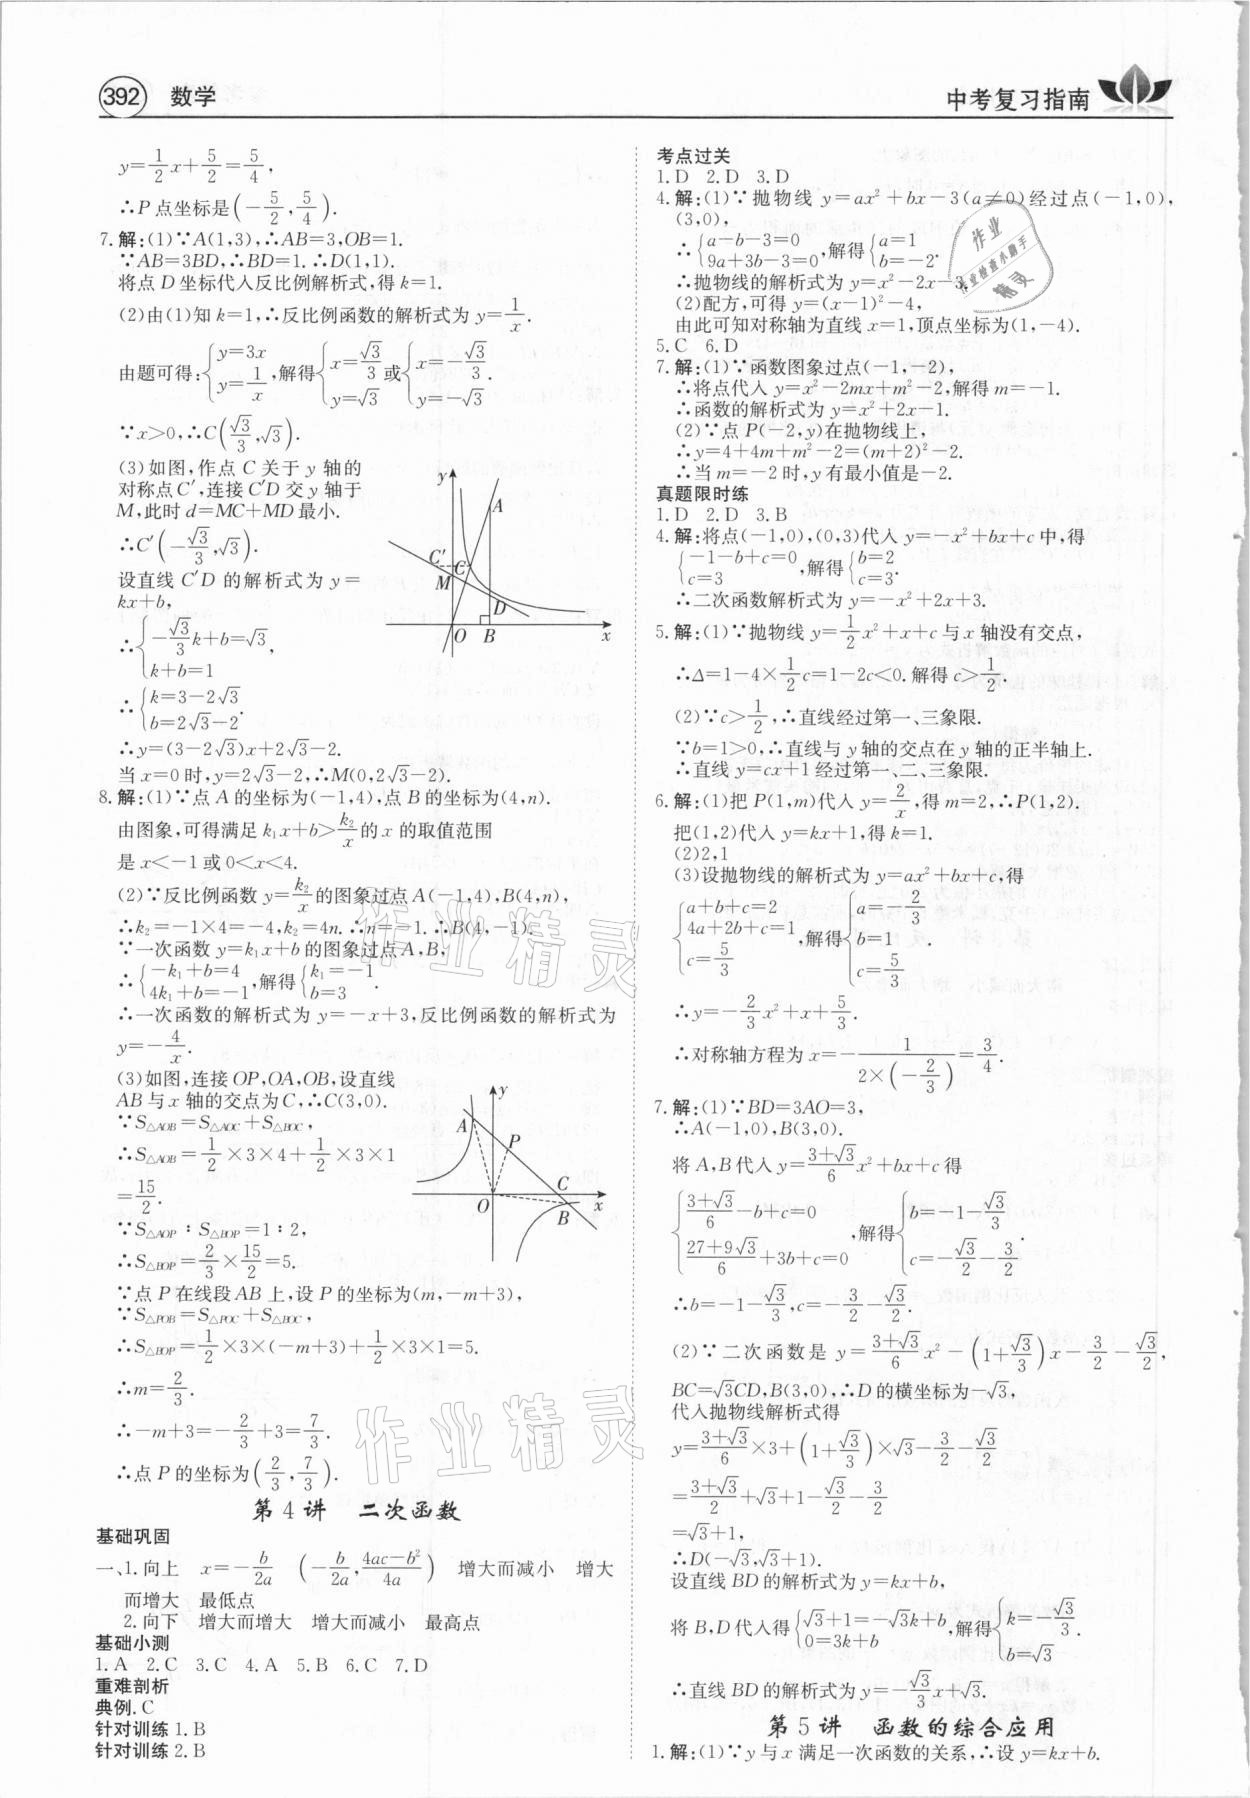 392 数学
中考复习指南
y=1/2x+5/2=5/4,
∴P点坐标是(-5/2,5/4).
7.解:(1)∵A(1,3),∴AB=3,OB=1.
∵AB=3BD,∴BD=1.∴D(1,1).
将点D坐标代入反比例解析式,得k=1.
(2)由(1)知k=1,∴反比例函数的解析式为y=1/x.
由题可得:{y=3x y=1/x,解得{x=√3/3 y=√3或{x=-√3/3 y=-√3.
∵x>0,∴C(√3/3,√3).
(3)如图,作点C关于y轴的
对称点C′,连接C′D交y轴于
M,此时d=MC+MD最小.
∴C′(-√3/3,√3).
设直线C′D的解析式为y=
kx+b,
∴{-√3/3k+b=√3, k+b=1
∴{k=3-2√3 b=2√3-2.
∴y=(3-2√3)x+2√3-2.
当x=0时,y=2√3-2,∴M(0,2√3-2).
y A C′ C M D O B x
8.解:(1)∵点A的坐标为(-1,4),点B的坐标为(4,n).
由图象,可得满足k₁x+b>k₂/x的x的取值范围
是x<-1或0<x<4.
(2)∵反比例函数y=k₂/x的图象过点A(-1,4),B(4,n),
∴k₂=-1×4=-4,k₂=4n.∴n=-1.∴B(4,-1).
∵一次函数y=k₁x+b的图象过点A,B,
∴{-k₁+b=4 4k₁+b=-1,解得{k₁=-1 b=3
∴一次函数的解析式为y=-x+3,反比例函数的解析式为
y=-4/x.
(3)如图,连接OP,OA,OB,设直线
AB与x轴的交点为C,∴C(3,0).
∵S△AOB=S△AOC+S△BOC,
∴S△AOB=1/2×3×4+1/2×3×1
=15/2.
∵S△AOP:S△BOP=1:2,
∴S△BOP=2/3×15/2=5.
y A P C O B x
∵点P在线段AB上,设P的坐标为(m,-m+3),
∵S△POB=S△POC+S△BOC,
∴S△BOP=1/2×3×(-m+3)+1/2×3×1=5.
∴m=2/3.
∴-m+3=-2/3+3=7/3.
∴点P的坐标为(2/3,7/3).
第4讲 二次函数
基础巩固
一、1.向上 x=-b/2a (-b/2a,4ac-b²/4a) 增大而减小 增大
而增大 最低点
2.向下 增大而增大 增大而减小 最高点
基础小测
1.A 2.C 3.C 4.A 5.B 6.C 7.D
重难剖析
典例.C
针对训练1.B
针对训练2.B
考点过关
1.D 2.D 3.D
4.解:(1)∵抛物线y=ax²+bx-3(a≠0)经过点(-1,0),
(3,0),
∴{a-b-3=0 9a+3b-3=0,解得{a=1 b=-2.
∴抛物线的解析式为y=x²-2x-3.
(2)配方,可得y=(x-1)²-4,
由此可知对称轴为直线x=1,顶点坐标为(1,-4).
5.C 6.D
7.解:(1)∵函数图象过点(-1,-2),
∴将点代入y=x²-2mx+m²-2,解得m=-1.
∴函数的解析式为y=x²+2x-1.
(2)∵点P(-2,y)在抛物线上,
∴y=4+4m+m²-2=(m+2)²-2.
∴当m=-2时,y有最小值是-2.
真题限时练
1.D 2.D 3.B
4.解:将点(-1,0),(0,3)代入y=-x²+bx+c中,得
{-1-b+c=0 c=3,解得{b=2 c=3.
∴二次函数解析式为y=-x²+2x+3.
5.解:(1)∵抛物线y=1/2x²+x+c与x轴没有交点,
∴Δ=1-4×1/2c=1-2c<0.解得c>1/2.
(2)∵c>1/2,∴直线经过第一、三象限.
∵b=1>0,∴直线与y轴的交点在y轴的正半轴上.
∴直线y=cx+1经过第一、二、三象限.
6.解:(1)把P(1,m)代入y=2/x,得m=2,∴P(1,2).
把(1,2)代入y=kx+1,得k=1.
(2)2,1
(3)设抛物线的解析式为y=ax²+bx+c,得
{a+b+c=2 4a+2b+c=1, c=5/3 解得{a=-2/3 b=1. c=5/3
∴y=-2/3x²+x+5/3.
∴对称轴方程为x=-1/2×(-2/3)=3/4.
7.解:(1)∵BD=3AO=3,
∴A(-1,0),B(3,0).
将A,B代入y=3+√3/6x²+bx+c得
{3+√3/6-b+c=0 27+9√3/6+3b+c=0,解得{b=-1-√3/3 c=-√3/2-3/2.
∴b=-1-√3/3,c=-3/2-√3/2.
(2)∵二次函数是y=3+√3/6x²-(1+√3/3)x-3/2-√3/2,
BC=√3CD,B(3,0),∴D的横坐标为-√3,
代入抛物线解析式得
y=3+√3/6×3+(1+√3/3)×√3-3/2-√3/2
=3+√3/2+√3+1-3/2-√3/2
=√3+1,
∴D(-√3,√3+1).
设直线BD的解析式为y=kx+b,
将B,D代入得{√3+1=-√3k+b, 0=3k+b 解得{k=-√3/3. b=√3
∴直线BD的解析式为y=-√3/3x+√3.
第5讲 函数的综合应用
1.解:(1)∵y与x满足一次函数的关系,∴设y=kx+b.
作业精灵
作业精灵
作业
作业检查小助手
精灵